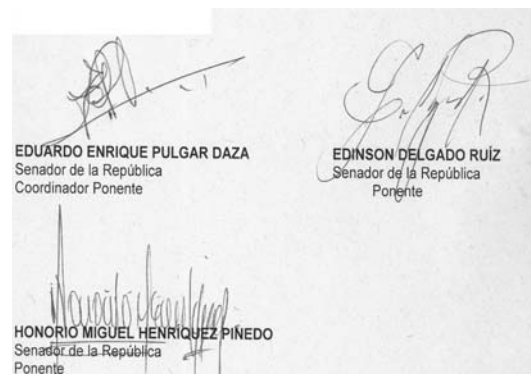 EDUARDO ENRIQUE PULGAR DAZA
Senador de la República
Coordinador Ponente
EDINSON DELGADO RUÍZ
Senador de la República
Ponente
HONORIO MIGUEL HENRÍQUEZ PIÑEDO
Senador de la República
Ponente